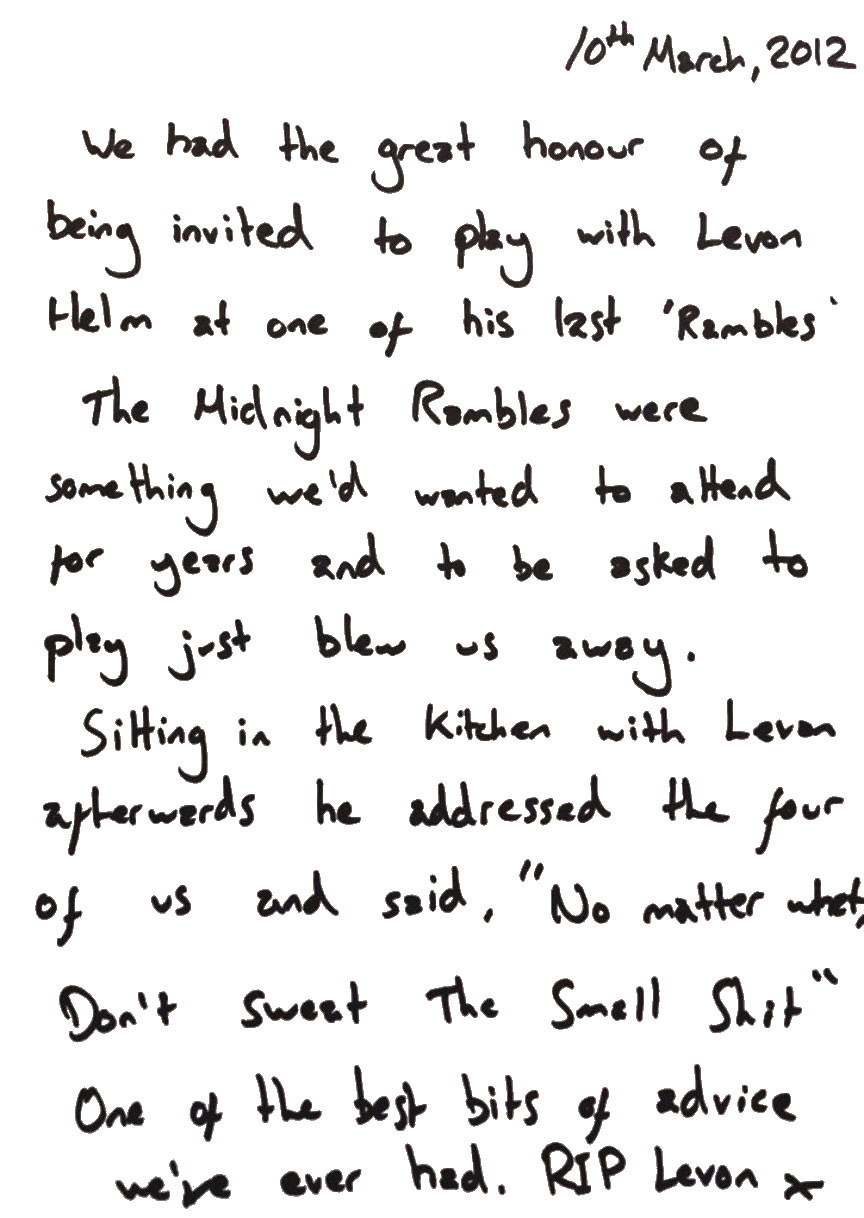 10th March, 2012
We had the great honour of
being invited to play with Levon
Helm at one of his last 'Rambles'
The Midnight Rambles were
something we'd wanted to attend
for years and to be asked to
play just blew us away.
Sitting in the Kitchen with Levon
afterwards he addressed the four
of us and said, "No matter what,
Don't Sweat The Small Shit"
One of the best bits of advice
we've ever had. RIP Levon x